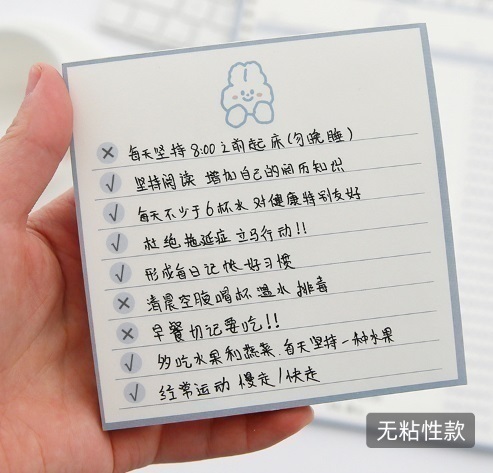 × 每天坚持8:00之前起床(勿晚睡)
√ 坚持阅读 增加自己的阅历知识
√ 每天不少于6杯水 对健康特别友好
√ 杜绝拖延症 立马行动!!
√ 形成每日记帐 好习惯
× 清晨空腹喝杯温水 排毒
× 早餐切记要吃!!
√ 多吃水果和蔬菜.每天坚持一种水果
√ 经常运动 慢走/快走
无粘性款